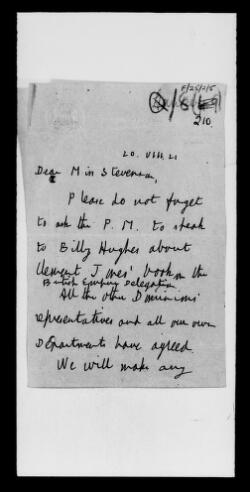 F/25/2/5
210.
20. VIII. 21
Dear Miss Stevenson,
Please do not forget
to ask the P. M. to speak
to Billy Hughes about
Clement Jones' book on the
British Empire Delegation.
All the other Dominions'
representatives and all our own
Departments have agreed.
We will make any